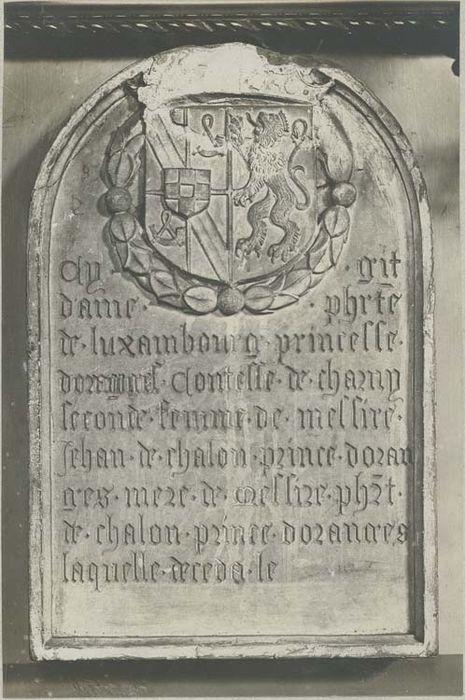 Cy · git
dame · phrte
de · luxambourg · princesse ·
doranges · Contesse · de · charny
seconde · femme · de · messire ·
Jehan · de · chalon · prince · doran
ges · mere · de · Messire · phrt ·
de · chalon · prince · doranges
laquelle · deceda · le